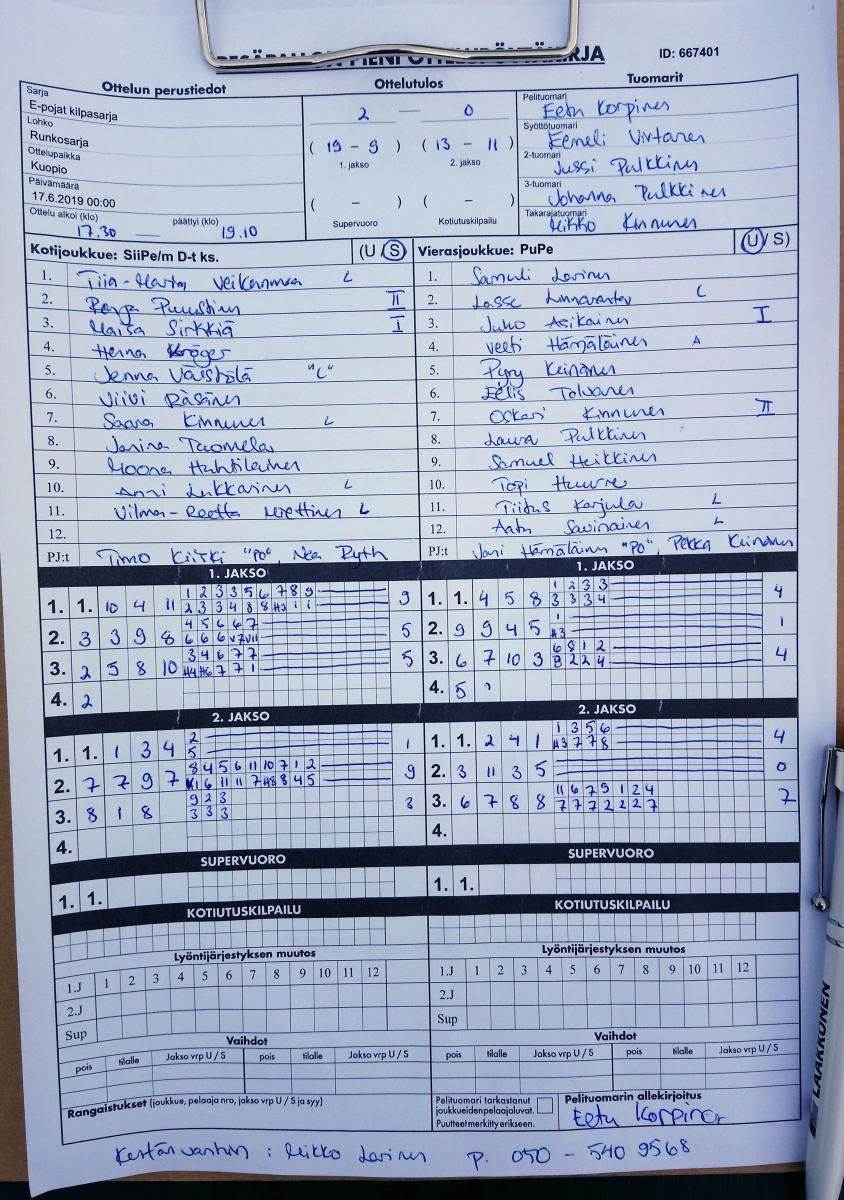 PESÄPALLON PIENI OTTELUPÖYTÄKIRJA
ID: 667401
Ottelun perustiedot
Sarja
E-pojat kilpasarja
Lohko
Runkosarja
Ottelupaikka
Kuopio
Päivämäärä
17.6.2019 00:00
Ottelu alkoi (klo) päättyi (klo)
17.30 — 19.10
Ottelutulos
2 — 0
( 19 - 9 ) ( 13 - 11 )
1. jakso 2. jakso
( - ) ( - )
Supervuoro Kotiutuskilpailu
Tuomarit
Pelituomari
Eetu Korpinen
Syöttötuomari
Eemeli Virtanen
2-tuomari
Jussi Pulkkinen
3-tuomari
Johanna Pulkkinen
Takarajatuomari
Mikko Kinnunen
Kotijoukkue: SiiPe/m D-t ks. (U / S)
1. Tiia-Maria L
2. Puustinen II
3. Maisa Sirkkiä I
4. Henna Kröger
5. Jenna Väistölä "C"
6. Viivi Räsänen
7. Saara Kinnunen L
8. Janina Tuomela
9. Moona Huhtilainen
10. Anni Lukkarinen L
11. Vilma-Reetta Miettinen L
12.
PJ:t Timo Kiiski "PO", Nea Ryth
Vierasjoukkue: PuPe (U / S)
1. Samuli Lavinen
2. Lasse Linnavantev C
3. Juho Asikainen I
4. Veeti Hämäläinen A
5. Pyry Keinänen
6. Eelis Tolvanen
7. Oskari Kinnunen II
8. Laura Pulkkinen
9. Samuel Heikkinen
10. Topi Huure
11. Tiitus Karjula L
12. Aatu Savinainen L
PJ:t Jani Hämäläinen "PO", Pekka Keinänen
1. JAKSO
1. 1. 10 4 11 1 2 3 3 5 6 7 8 9 9
2 3 3 4 8 8 H3 1 1
2. 3 3 9 8 4 5 6 6 7 5
6 6 6 V7 VII
3. 2 5 8 10 3 4 6 7 7 5
H4 H6 7 7 1
4. 2
2. JAKSO
1. 1. 1 3 4 2 1
5
2. 7 7 9 7 8 4 5 6 11 10 7 1 2 9
K1 6 11 11 7 H8 8 4 5
3. 8 1 8 9 2 3 3
3 3 3
4.
SUPERVUORO
1. 1.
KOTIUTUSKILPAILU
1. JAKSO
1. 1. 4 5 8 1 2 3 3 4
3 3 3 4
2. 9 9 4 5 1 1
H3
3. 6 7 10 3 6 8 1 2 4
8 2 2 4
4. 5
2. JAKSO
1. 1. 2 4 1 1 3 5 6 4
H3 7 7 8
2. 3 11 3 5 0
3. 6 7 8 8 11 6 7 9 1 2 4 7
7 7 7 2 2 2 7
4.
SUPERVUORO
1. 1.
KOTIUTUSKILPAILU
Lyöntijärjestyksen muutos
1.J 1 2 3 4 5 6 7 8 9 10 11 12
2.J
Sup
Vaihdot
pois tilalle Jakso vrp U / S pois tilalle Jakso vrp U / S
Rangaistukset (joukkue, pelaaja nro, jakso vrp U / S ja syy)
Lyöntijärjestyksen muutos
1.J 1 2 3 4 5 6 7 8 9 10 11 12
2.J
Sup
Vaihdot
pois tilalle Jakso vrp U / S pois tilalle Jakso vrp U / S
Pelituomari tarkastanut
joukkueidenpelaajaluvat.
Puutteet merkitty erikseen.
Pelituomarin allekirjoitus
Eetu Korpinen
Kentän vanhin : Mikko Lavinen p. 050 - 540 9568
LAAKKONEN